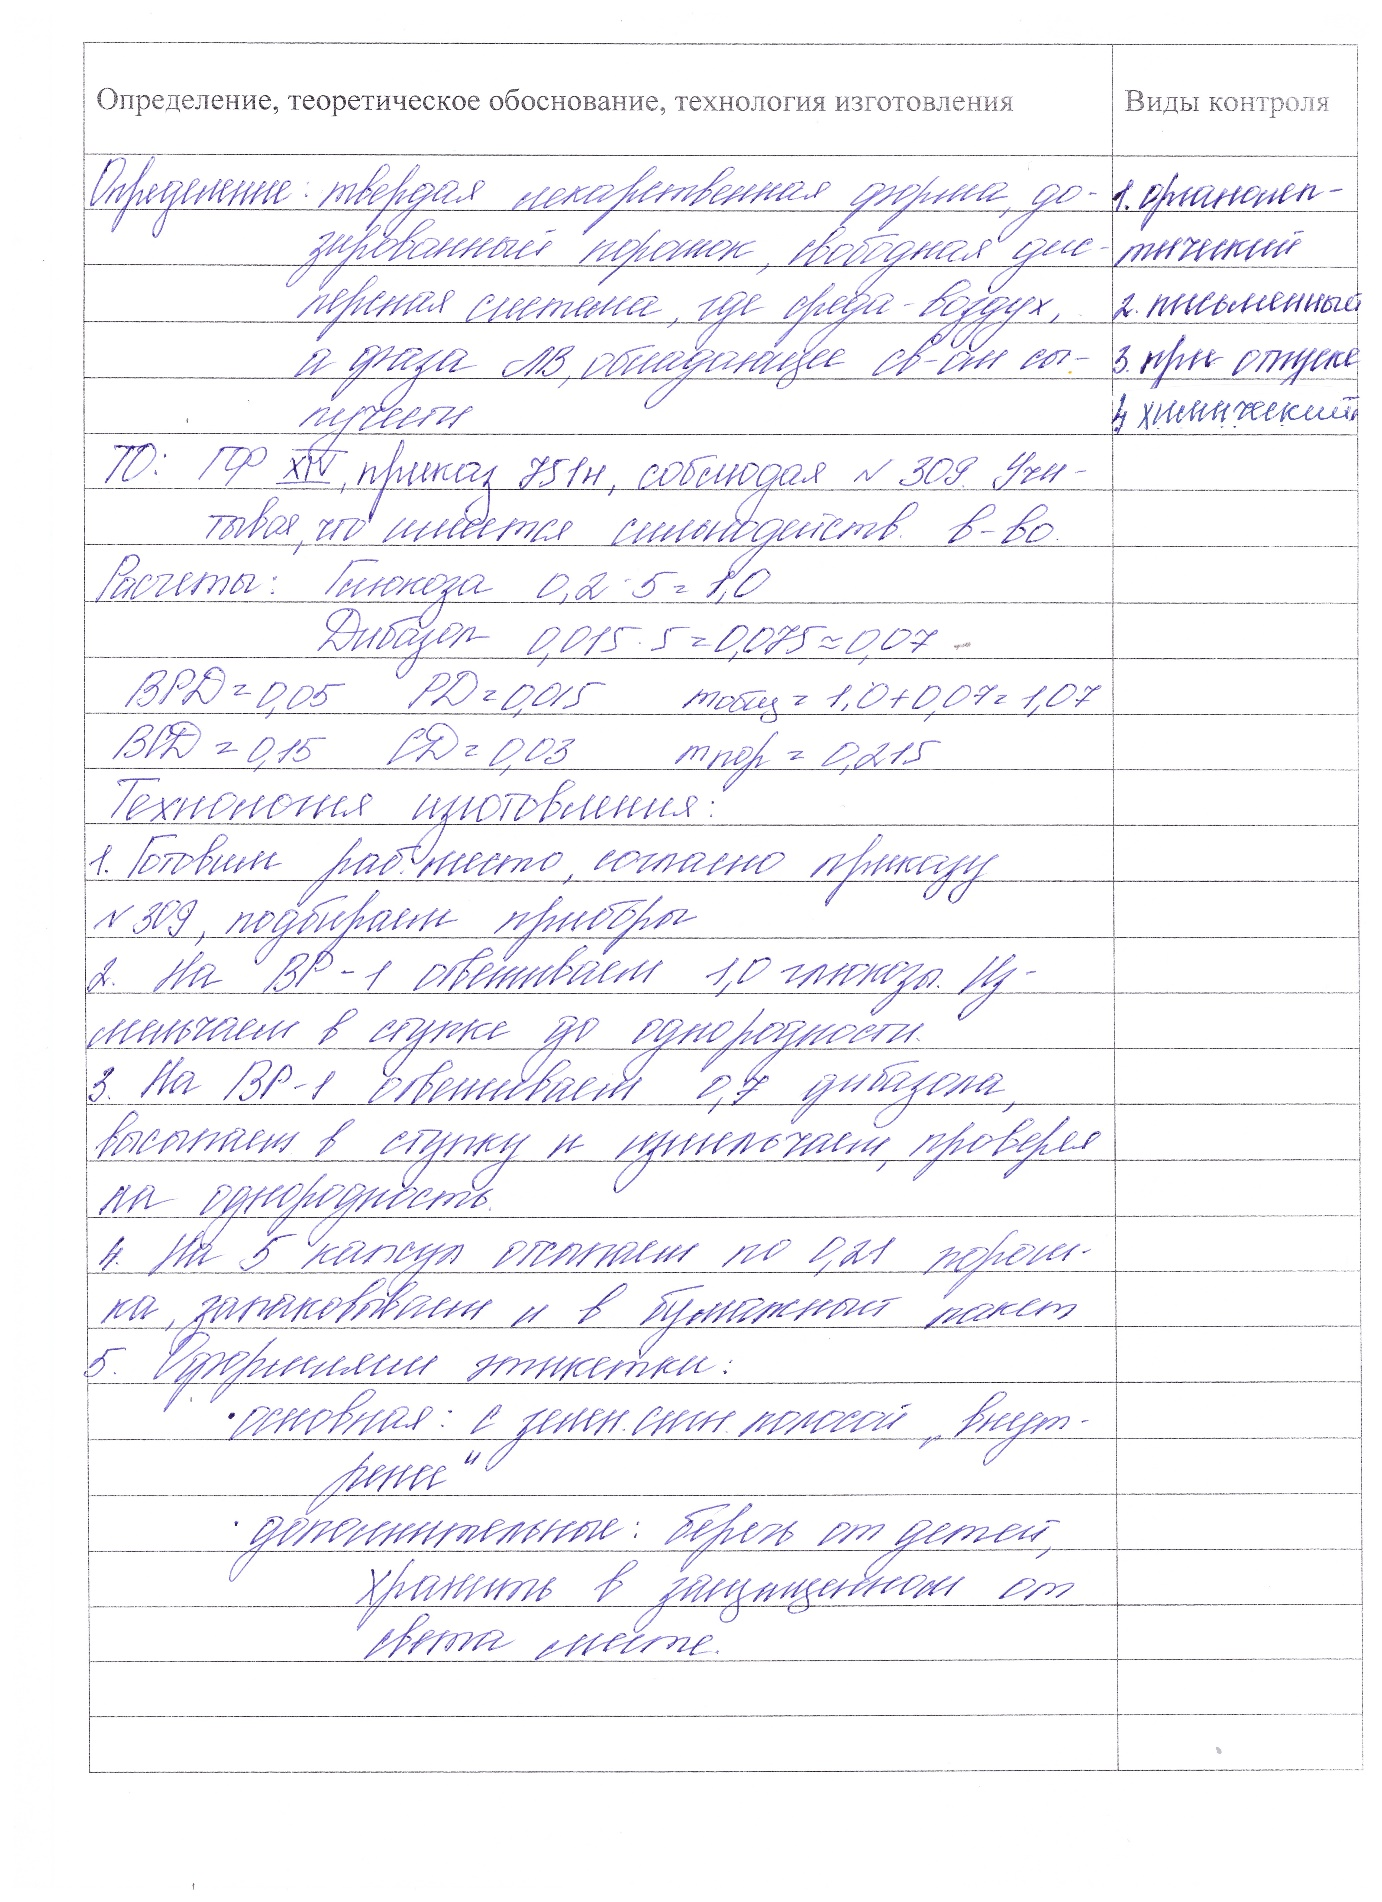 Определение, теоретическое обоснование, технология изготовления
Виды контроля
Определение: твердая лекарственная форма, до-
зированный порошок, свободная дис-
персная система, где среда - воздух,
а фаза ЛВ, обладающее св-ом сы-
пучести
1. органолеп-
тический
2. письменный
3. при отпуске
4 химический
ТО: ГФ XIV, приказ 751н, соблюдая № 309. Учи-
тывая, что имеется сильнодейств. в-во.
Расчеты: Глюкоза 0,2 · 5 = 1,0
Дибазол 0,015 · 5 = 0,075 ≈ 0,07
ВРД = 0,05 РД = 0,015 mобщ = 1,0 + 0,07 = 1,07
ВСД = 0,15 СД = 0,03 mпор = 0,215
Технология изготовления:
1. Готовим раб. место, согласно приказу
№ 309, подбираем приборы
2. На ВР-1 отвешиваем 1,0 глюкозы. Из-
мельчаем в ступке до однородности.
3. На ВР-1 отвешиваем 0,7 дибазола,
высыпаем в ступку и измельчаем, проверяя
на однородность.
4. На 5 капсул отсыпаем по 0,21 порош-
ка, запаковываем и в бумажный пакет
5. Оформляем этикетки:
• основная: с зелен. сигн. полосой „Внут-
ренее"
• дополнительные: беречь от детей,
хранить в защищенном от
света месте.